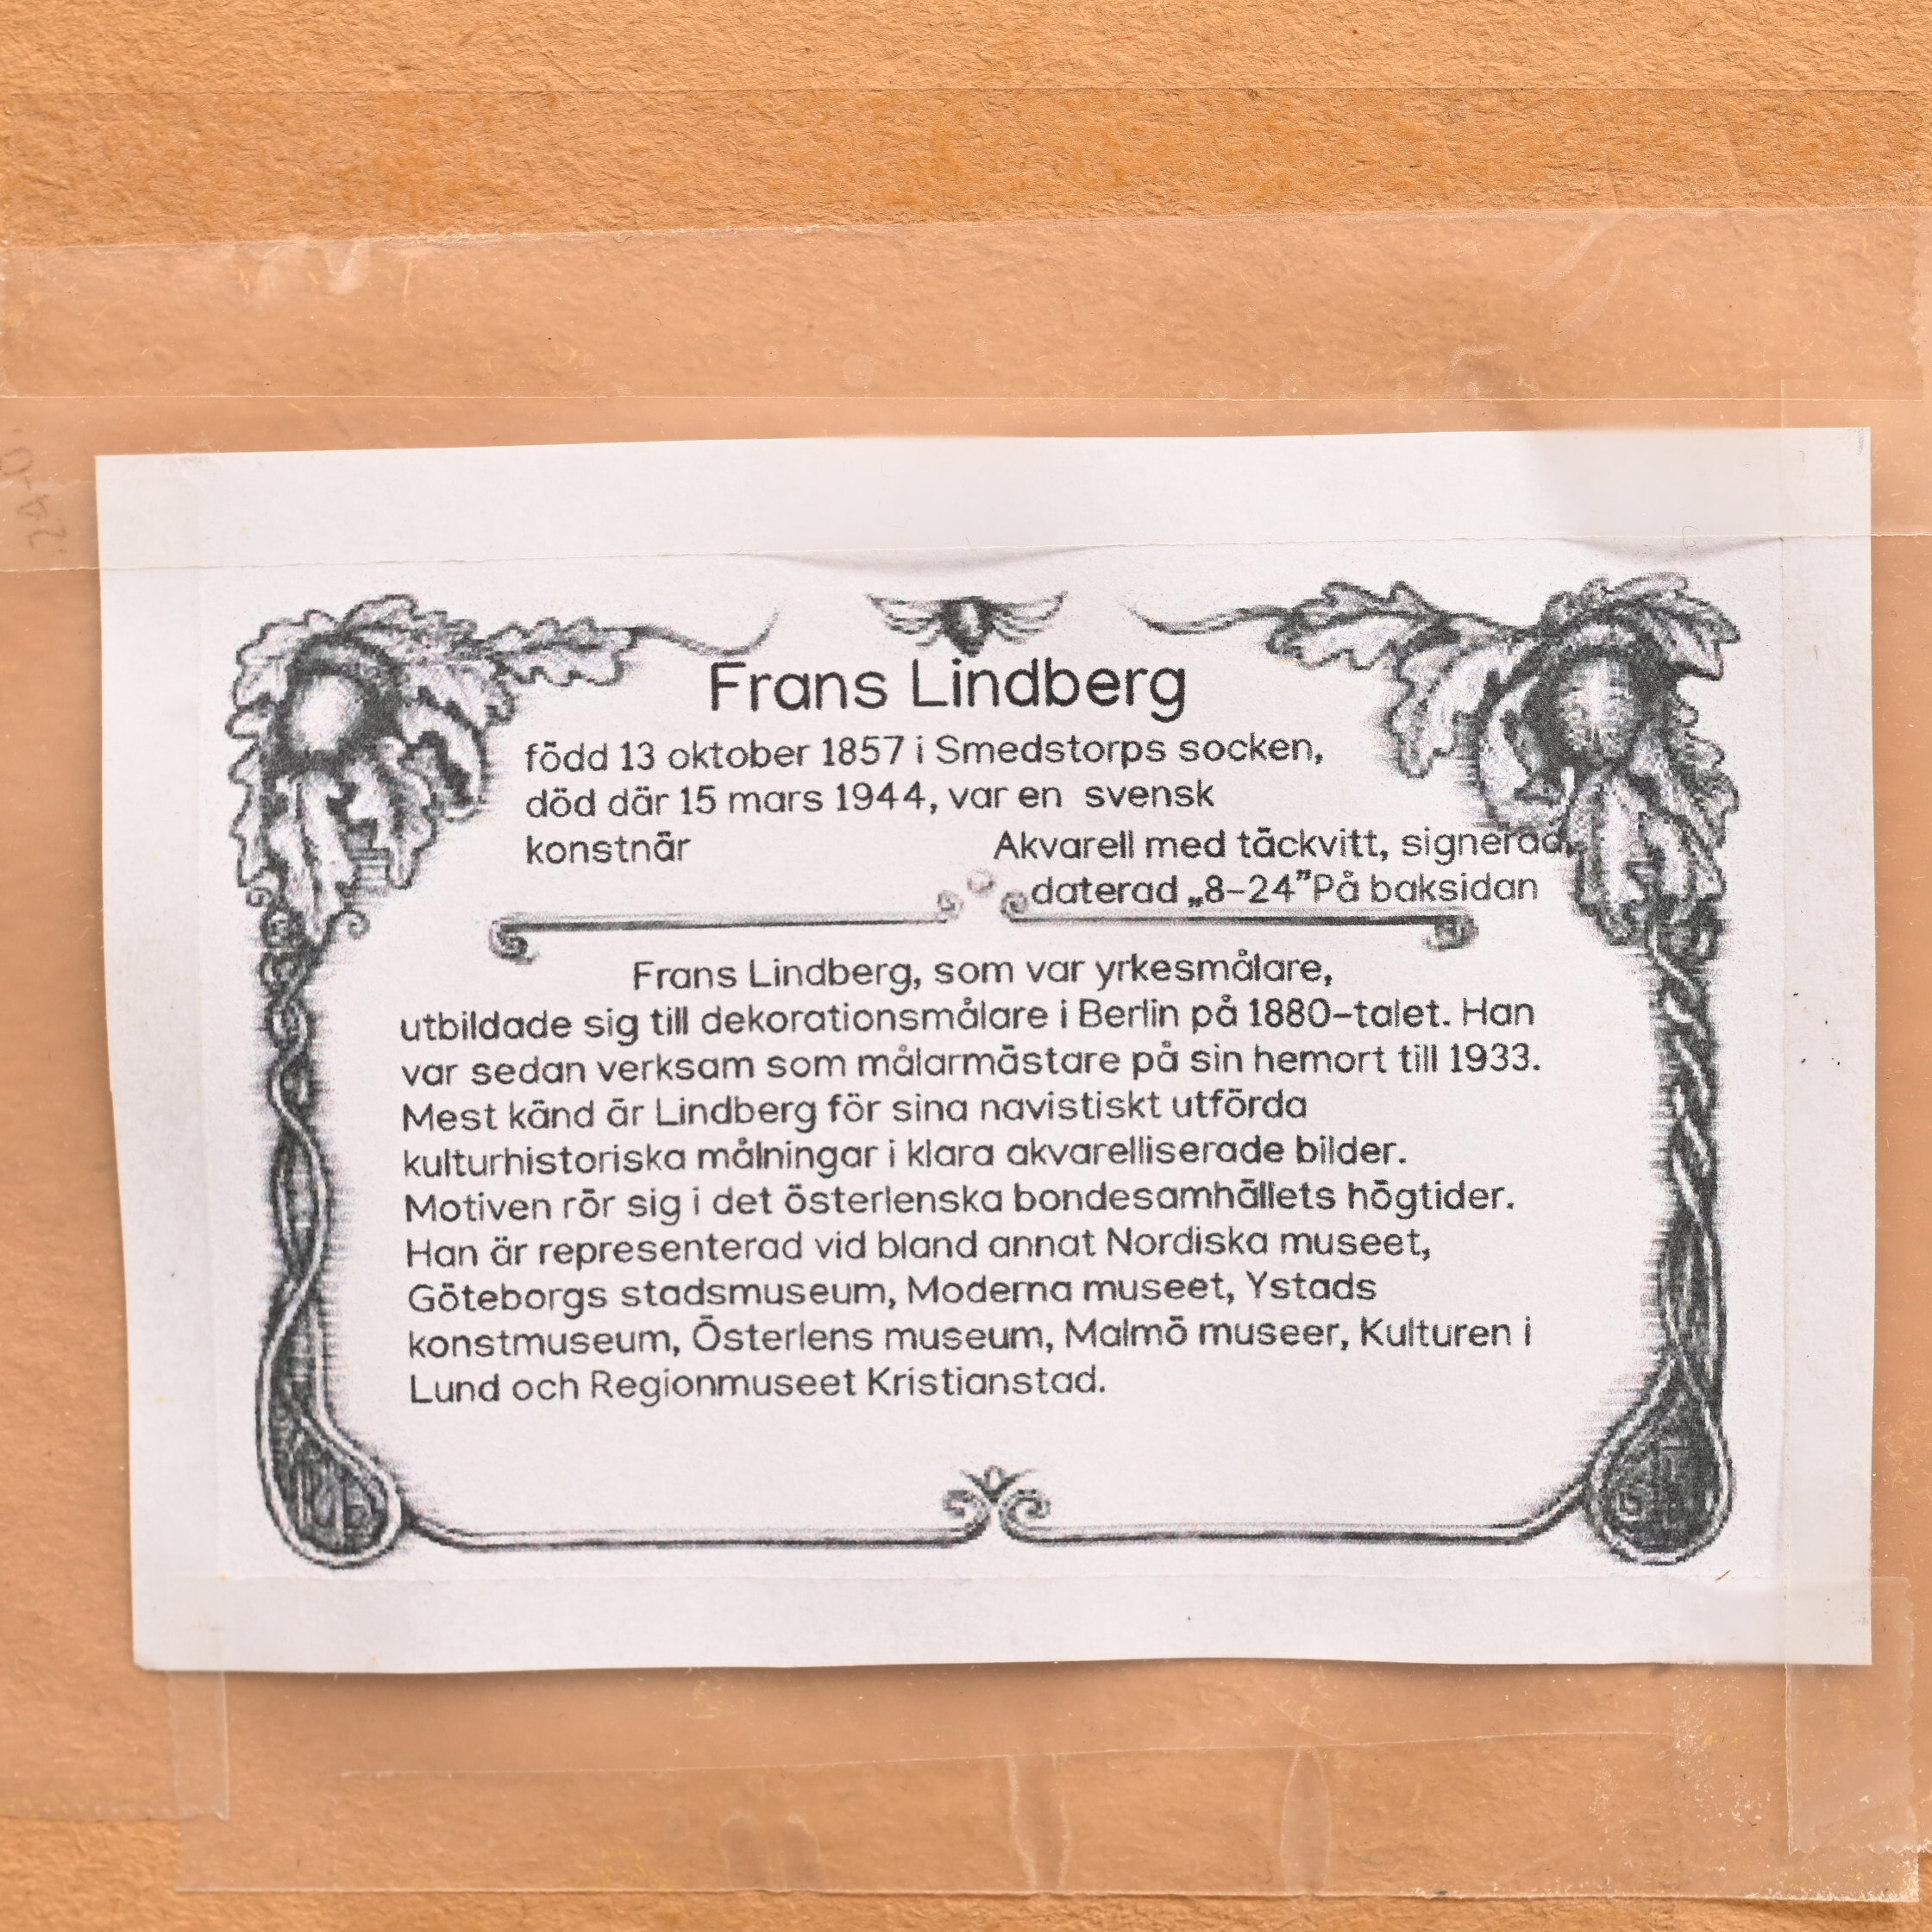 Frans Lindberg
född 13 oktober 1857 i Smedstorps socken,
död där 15 mars 1944, var en svensk
konstnär
Akvarell med täckvitt, signerad,
daterad „8-24”På baksidan
Frans Lindberg, som var yrkesmålare,
utbildade sig till dekorationsmålare i Berlin på 1880-talet. Han
var sedan verksam som målarmästare på sin hemort till 1933.
Mest känd är Lindberg för sina navistiskt utförda
kulturhistoriska målningar i klara akvarelliserade bilder.
Motiven rör sig i det österlenska bondesamhällets högtider.
Han är representerad vid bland annat Nordiska museet,
Göteborgs stadsmuseum, Moderna museet, Ystads
konstmuseum, Österlens museum, Malmö museer, Kulturen i
Lund och Regionmuseet Kristianstad.